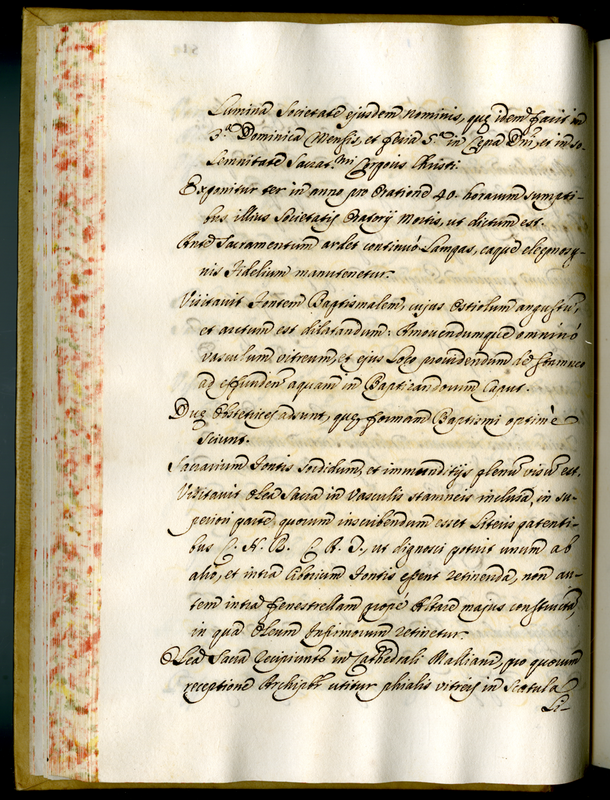 Lumina Societate ejusdem Nominis, quę idem facit in
3.ª Dominica Mensis, et feria 5.ª in Cęna Dni, et in so-
lemnitate Sacrat.mi Corporis Christi.
Exponitur ter in anno pro Oratione 40. horarum sumpti-
bus illius Societatis Oratorij Mortis, ut dictum est.
Ante Sacramentum ardet continuò Lampas, eaque eleemosy-
nis Fidelium manutenetur.
Visitavit Fontem Baptismalem, cujus Ostiolum angustũ,
et arctum est dilatandum: Amovendumque omninò
Vasculum vitreum, et ejus Loco providendum de
ad effunden. aquam in Baptizandorum Caput.
Duę Obstetrices adsunt, quę formam Baptismi optimè
sciunt.
Sacrarium Fontis sordidum, et immunditijs plenũ visũ est.
Visitavit Olea Sacra in Vasculis stamneis inclusa, in su-
periori parte quorum inscribendum esset Literis patenti-
bus C. R. I., ut dignosci potuit unum ab
alio, et intra Ciborium Fontis essent retinenda, non au-
tem intra fenestrellam propè Altare majus constructã,
in qua Oleum Infirmorum retinetur.
Olea Sacra recipiunt in Cathedrali Malliana, pro quorum
receptione Archipbr utitur phialis vitreis in Scatula
Li-